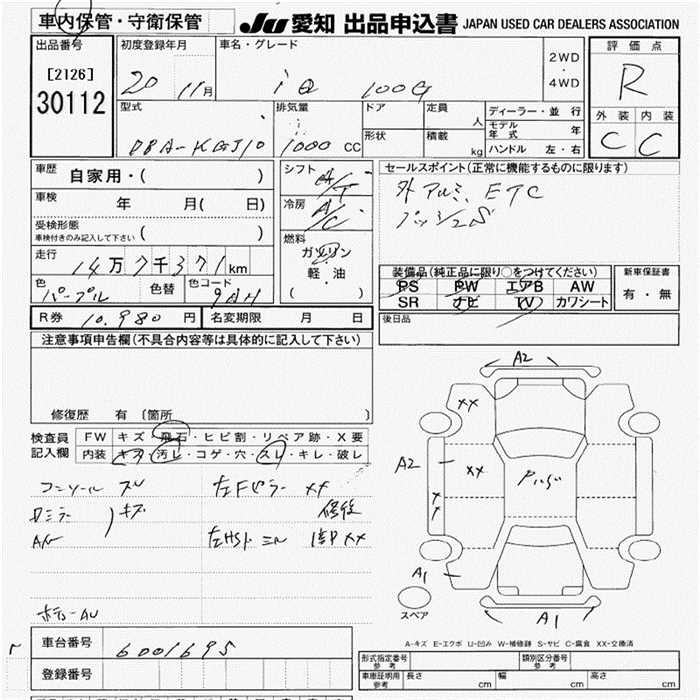 車内保管・守衛保管
JU 愛知 出品申込書 JAPAN USED CAR DEALERS ASSOCIATION
出品番号
[2126]
30112
初度登録年月
20 11月
車名・グレード
iQ 100G
2WD
・
4WD
評価点
R
外装 内装
C C
型式
DBA-KGJ10
排気量
1000 CC
ドア
定員
人
形状
積載
kg
ディーラー・並行
モデル年式 年
ハンドル 左・右
車歴
自家用・( )
車検
年 月( 日)
受検形態
車検付きのみ記入して下さい ( )
走行
14万7千371km
色
パープル
色替
色コード
9AH
シフト
A/T
冷房
A/C
燃料
ガソリン
軽・油
( )
セールスポイント(正常に機能するものに限ります)
外アルミ ETC
装備品(純正品に限り○をつけてください)
PS PW エアB AW
SR ナビ TV カワシート
新車保証書
有・無
後日品
R券 10,980 円
名変期限 月 日
注意事項申告欄(不具合内容等は具体的に記入して下さい)
修復歴 有 〔箇所 〕
検査員
記入欄
FW キズ・飛石・ヒビ割・リペア跡・X要
内装 キズ・汚レ・コゲ・穴・スレ・キレ・破レ
コンソール スレ
キズ
左Fピラー XX
修後
XX
A2
XX
A2
XX
A1
A1
スペア
A-キズ E-エクボ U-凹み W-補修跡 S-サビ C-腐食 XX-交換済
車台番号
6001695
登録番号
形式指定番号
参考
類別区分番号
参考
車庫証明用
参考
長さ cm
幅 cm
高さ cm